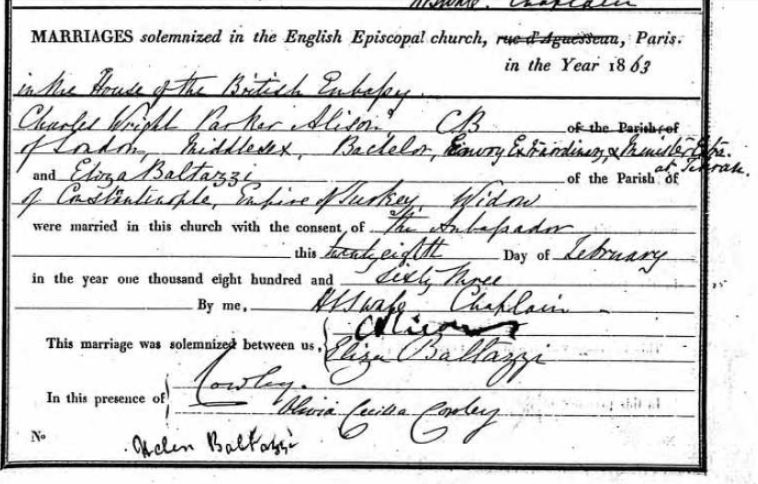 Chaplain
MARRIAGES solemnized in the English Episcopal church, rue d'Aguesseau, Paris.
in the Year 1863
in the House of the British Embassy.
Charles Wright Parker Alison, CB of the Parish of
of London, Middlesex, Bachelor, Envoy Extraordinary & Minister
at Tehran.
and Eliza Baltazzi of the Parish of
of Constantinople, Empire of Turkey, Widow
were married in this church with the consent of The Ambassador
this twenty eighth Day of February
in the year one thousand eight hundred and sixty three
By me, Chaplain
This marriage was solemnized between us, CAlison
Eliza Baltazzi
In this presence of Cowley.
Olivia Cecilia Cowley
No
Helen Baltazzi